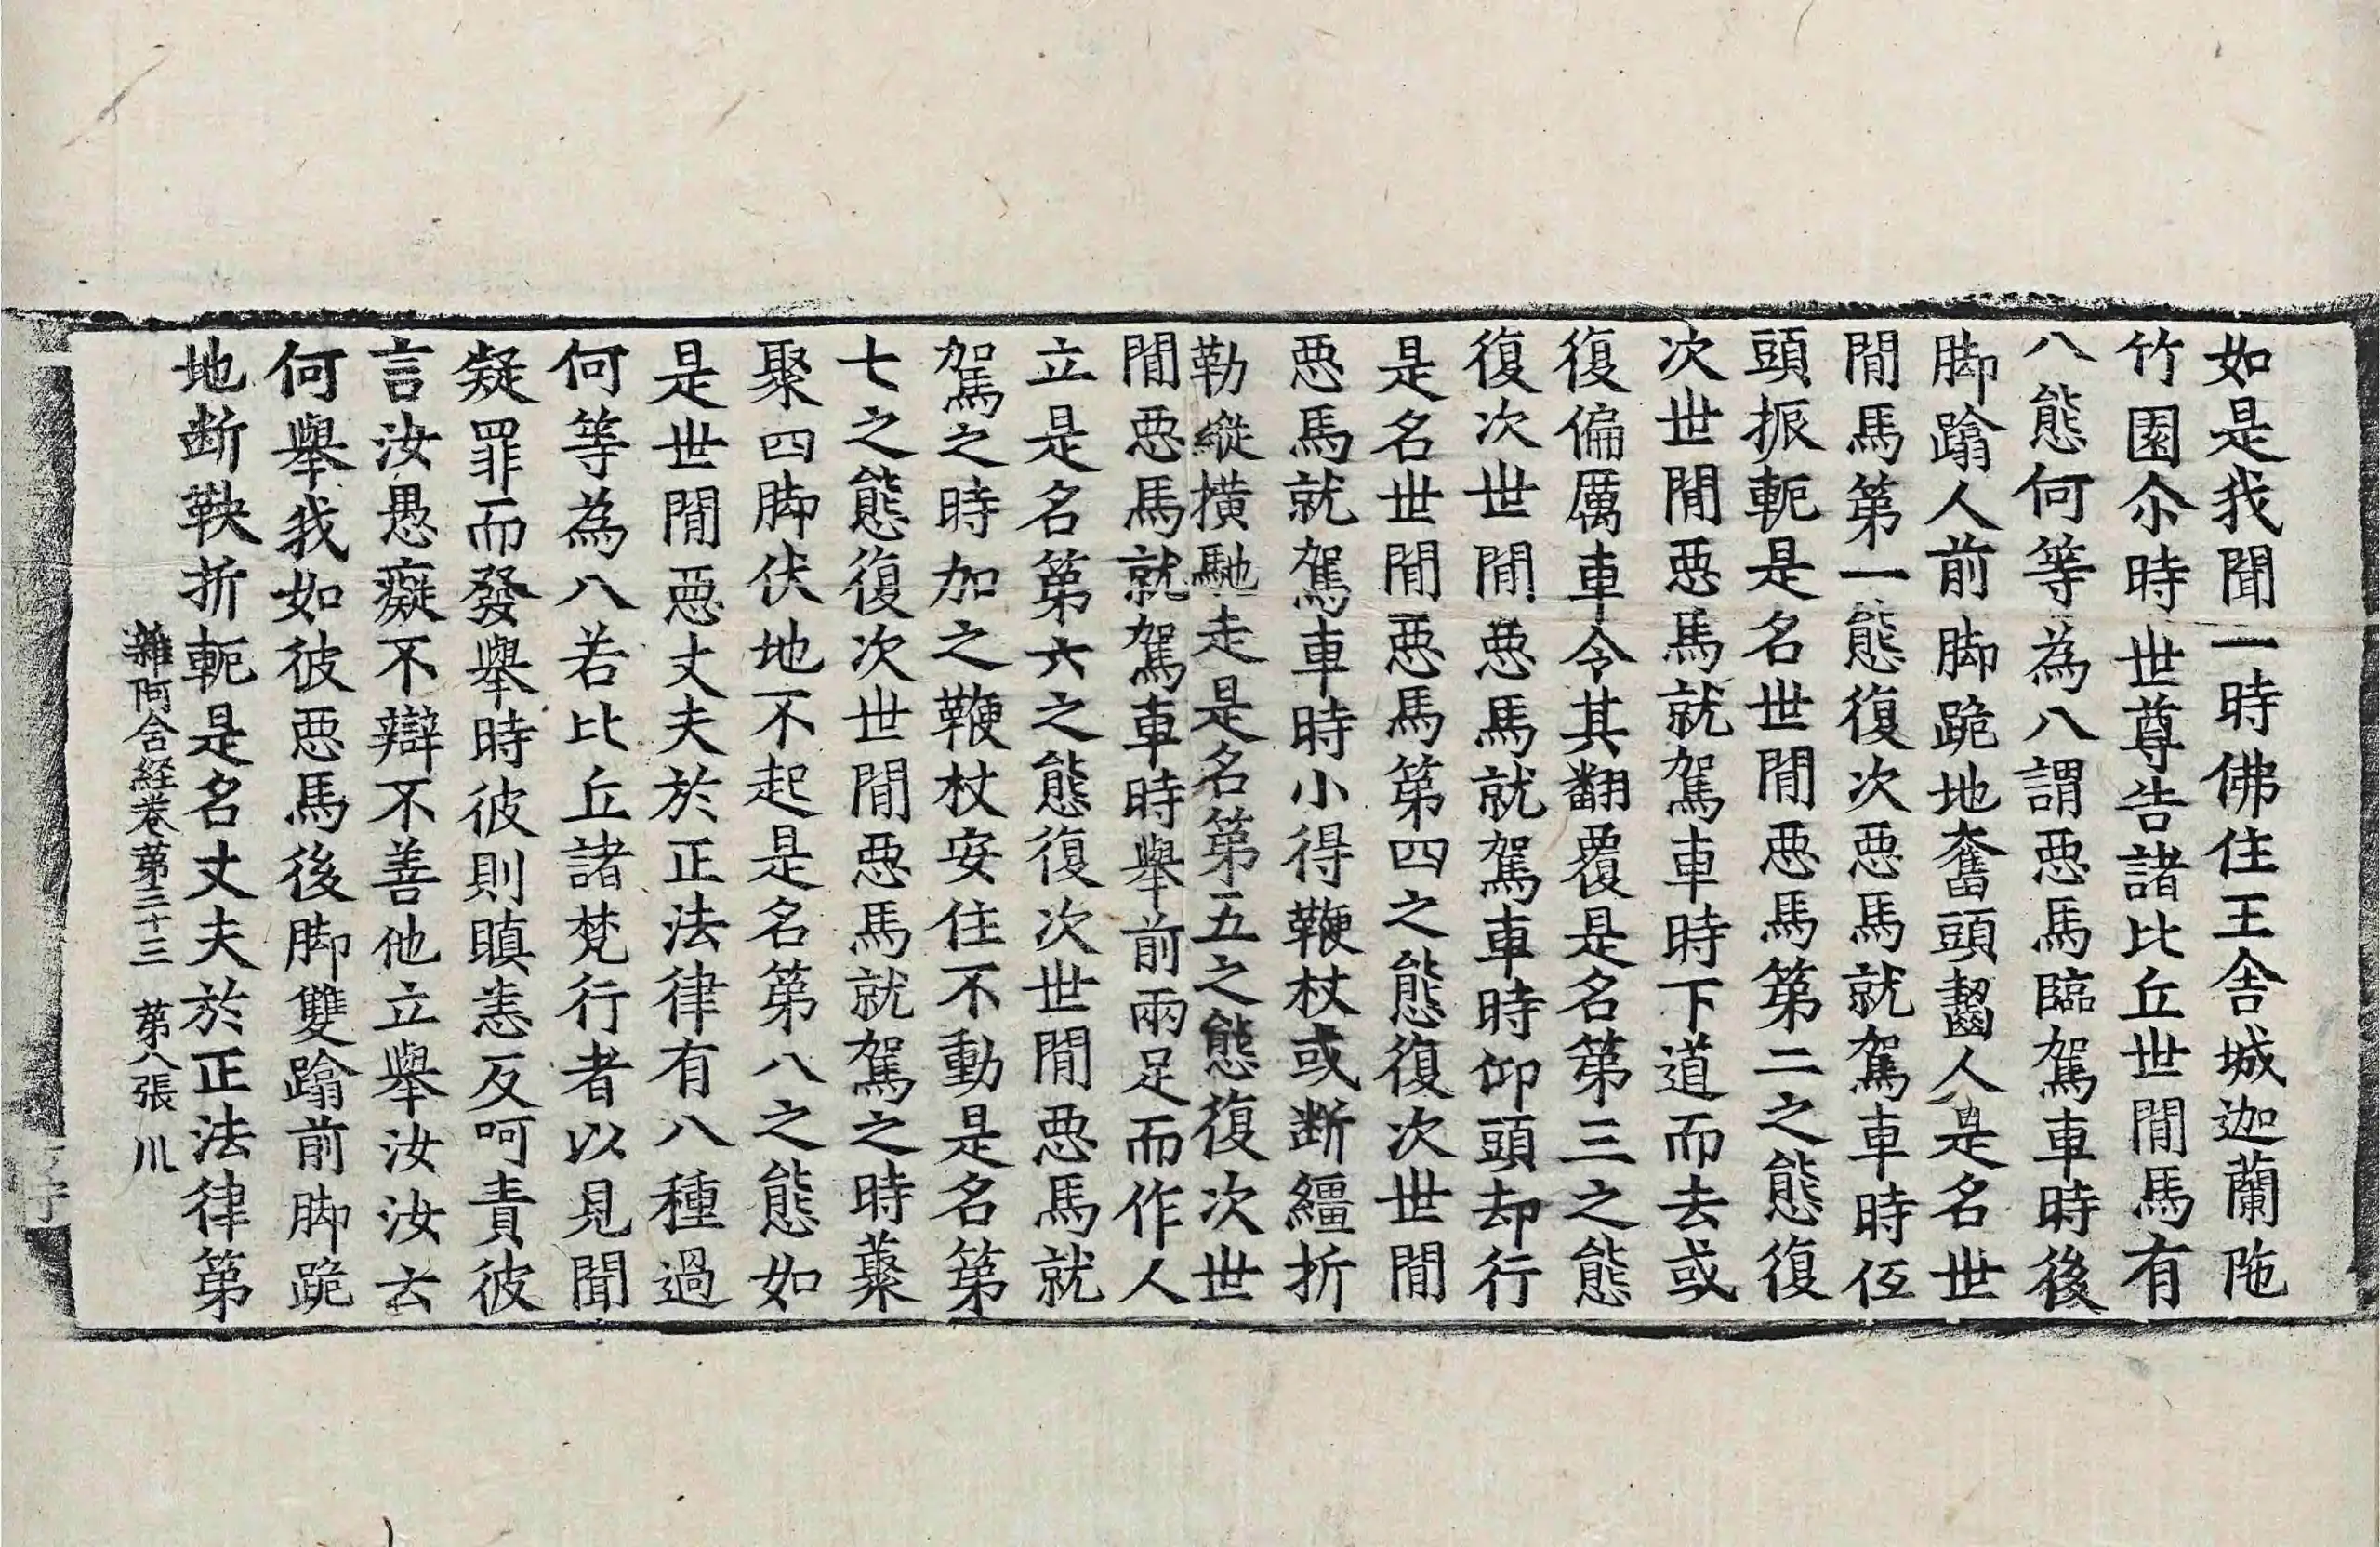 如是我聞一時佛住王舍城迦蘭陁
竹園尒時世尊告諸比丘世間馬有
八態何等為八謂惡馬臨駕車時後
脚蹹人前脚跪地奮頭齧人是名世
間馬第一態復次惡馬就駕車時伍
頭振軛是名世間惡馬第二之態復
次世間惡馬就駕車時下道而去或
復偏厲車令其翻覆是名第三之態
復次世間惡馬就駕車時仰頭却行
是名世間惡馬第四之態復次世間
惡馬就駕車時小得鞭杖或断繮折
勒縱橫馳走是名第五之態復次世
間惡馬就駕車時舉前兩足而作人
立是名第六之態復次世間惡馬就
駕之時加之鞭杖安住不動是名第
七之態復次世間惡馬就駕之時藂
聚四脚伏地不起是名第八之態如
是世間惡丈夫於正法律有八種過
何等為八若比丘諸梵行者以見聞
疑罪而發舉時彼則瞋恚反呵責彼
言汝愚癡不辯不善他立舉汝汝云
何舉我如彼惡馬後脚雙蹹前脚跪
地断鞅折軛是名丈夫於正法律第
雜阿含経卷第三十三 第八張 川